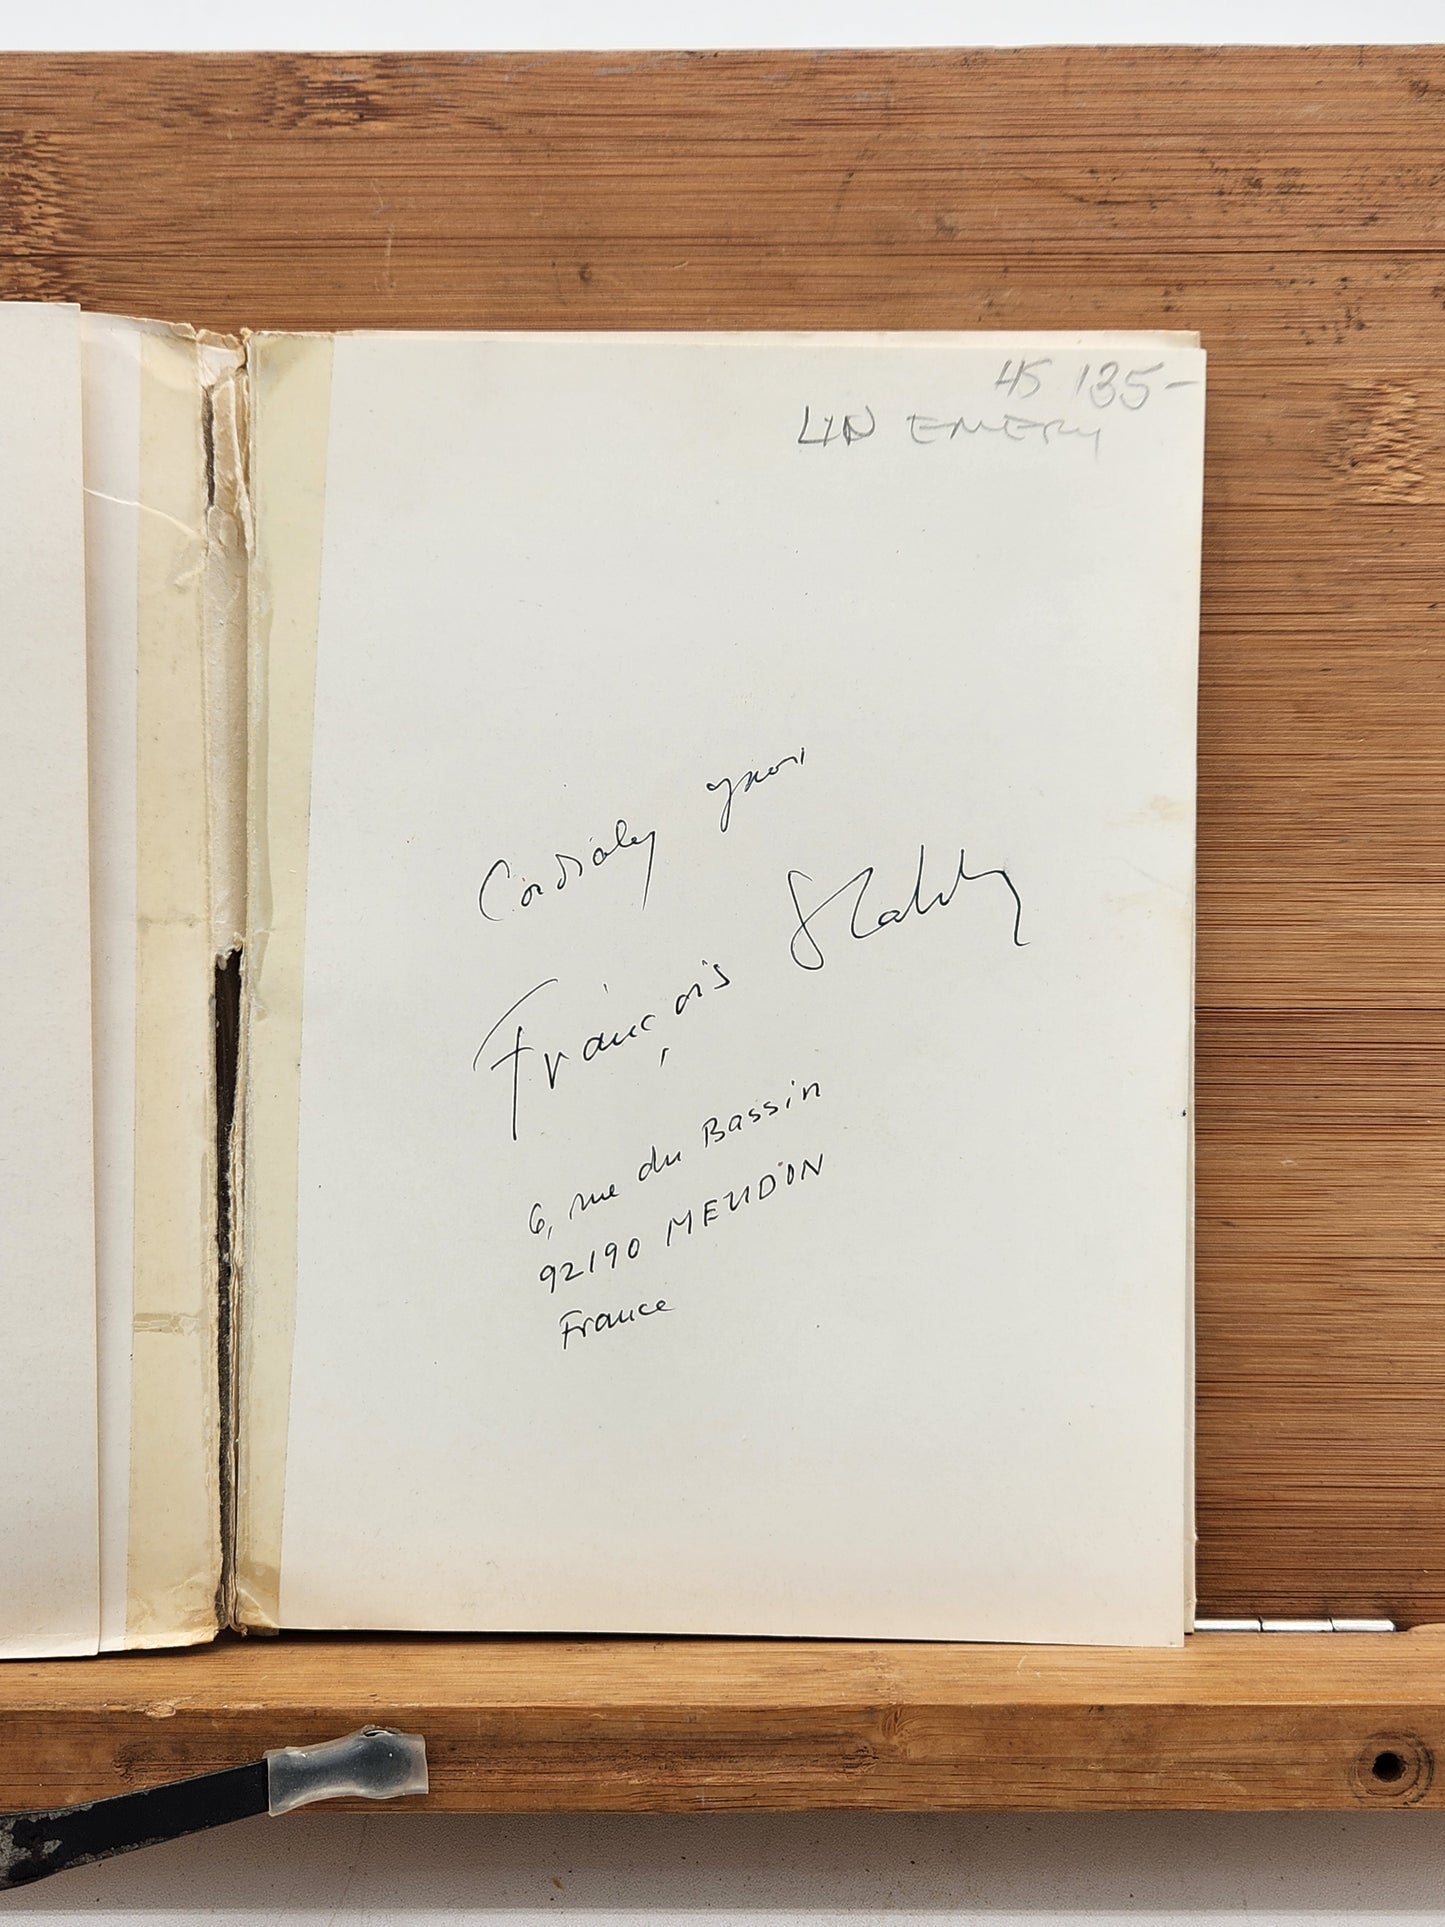 HS 135-
LIN EMERY
Cordialy yours
François Stahly
6, rue du Bassin
92190 MEUDON
France